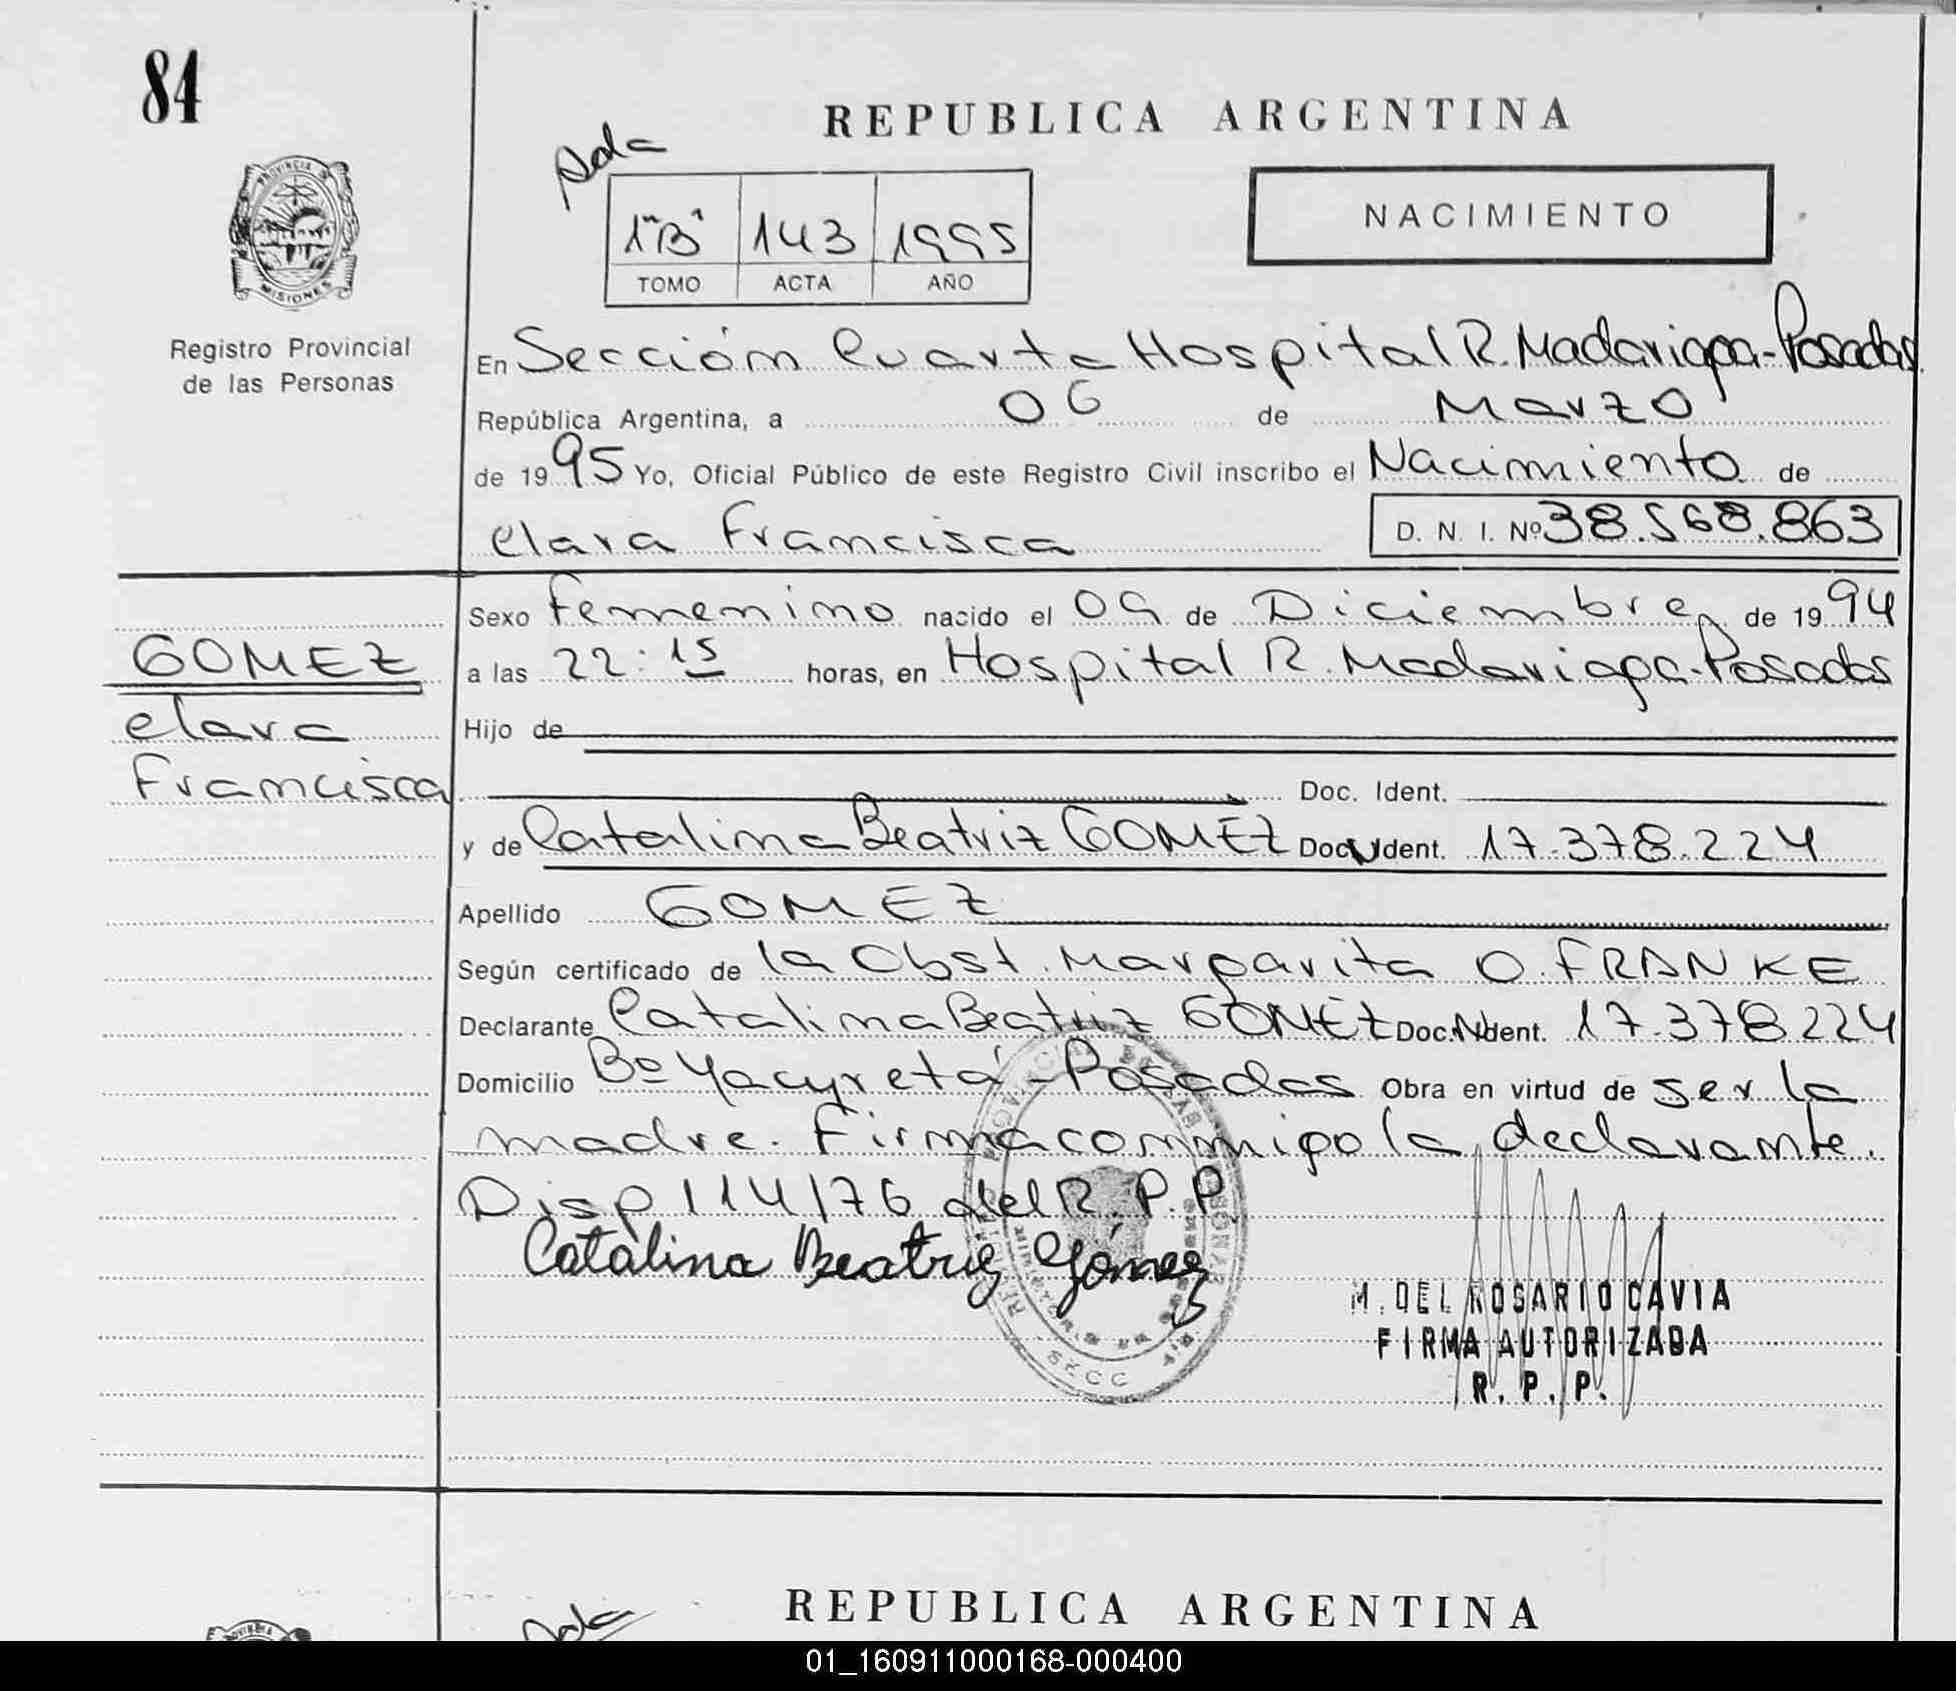 84
REPUBLICA ARGENTINA
Pda
1"B" 143 1995
TOMO ACTA AÑO
NACIMIENTO
PROVINCIA DE
MISIONES
Registro Provincial
de las Personas
En Sección Cuarta Hospital R. Madariaga-Posadas
República Argentina, a 06 de Marzo
de 1995 Yo, Oficial Público de este Registro Civil inscribo el Nacimiento de
Clara Francisca D. N. I. Nº 38.568.863
Sexo Femenino nacido el 09 de Diciembre de 1994
GOMEZ
Clara
Francisca
a las 22:15 horas, en Hospital R. Madariaga-Posadas
Hijo de
Doc. Ident.
y de Catalina Beatriz GOMEZ Doc. Ident. 17.378.224
Apellido GOMEZ
Según certificado de la Obst. Margarita O. FRANKE
Declarante Catalina Beatriz GOMEZ Doc. Ident. 17.378.224
Domicilio Bº Yacyretá - Posadas Obra en virtud de ser la
madre. Firma conmigo la declarante.
Disp 114/76 del R.P.P.
Catalina Beatriz Gómez
M. DEL ROSARIO CAVIA
FIRMA AUTORIZADA
R. P. P.
REPUBLICA ARGENTINA
01_160911000168-000400